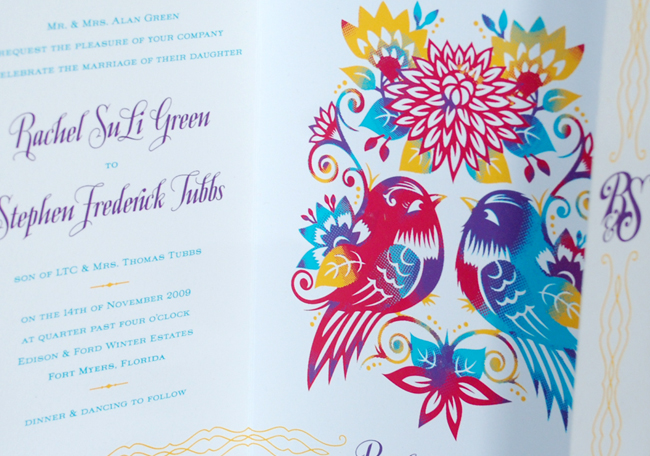 Mr. & Mrs. Alan Green
request the pleasure of your company
celebrate the marriage of their daughter
Rachel SuLi Green
to
Stephen Frederick Tubbs
son of LTC & Mrs. Thomas Tubbs
on the 14th of November 2009
at quarter past four o'clock
Edison & Ford Winter Estates
Fort Myers, Florida
dinner & dancing to follow
RS